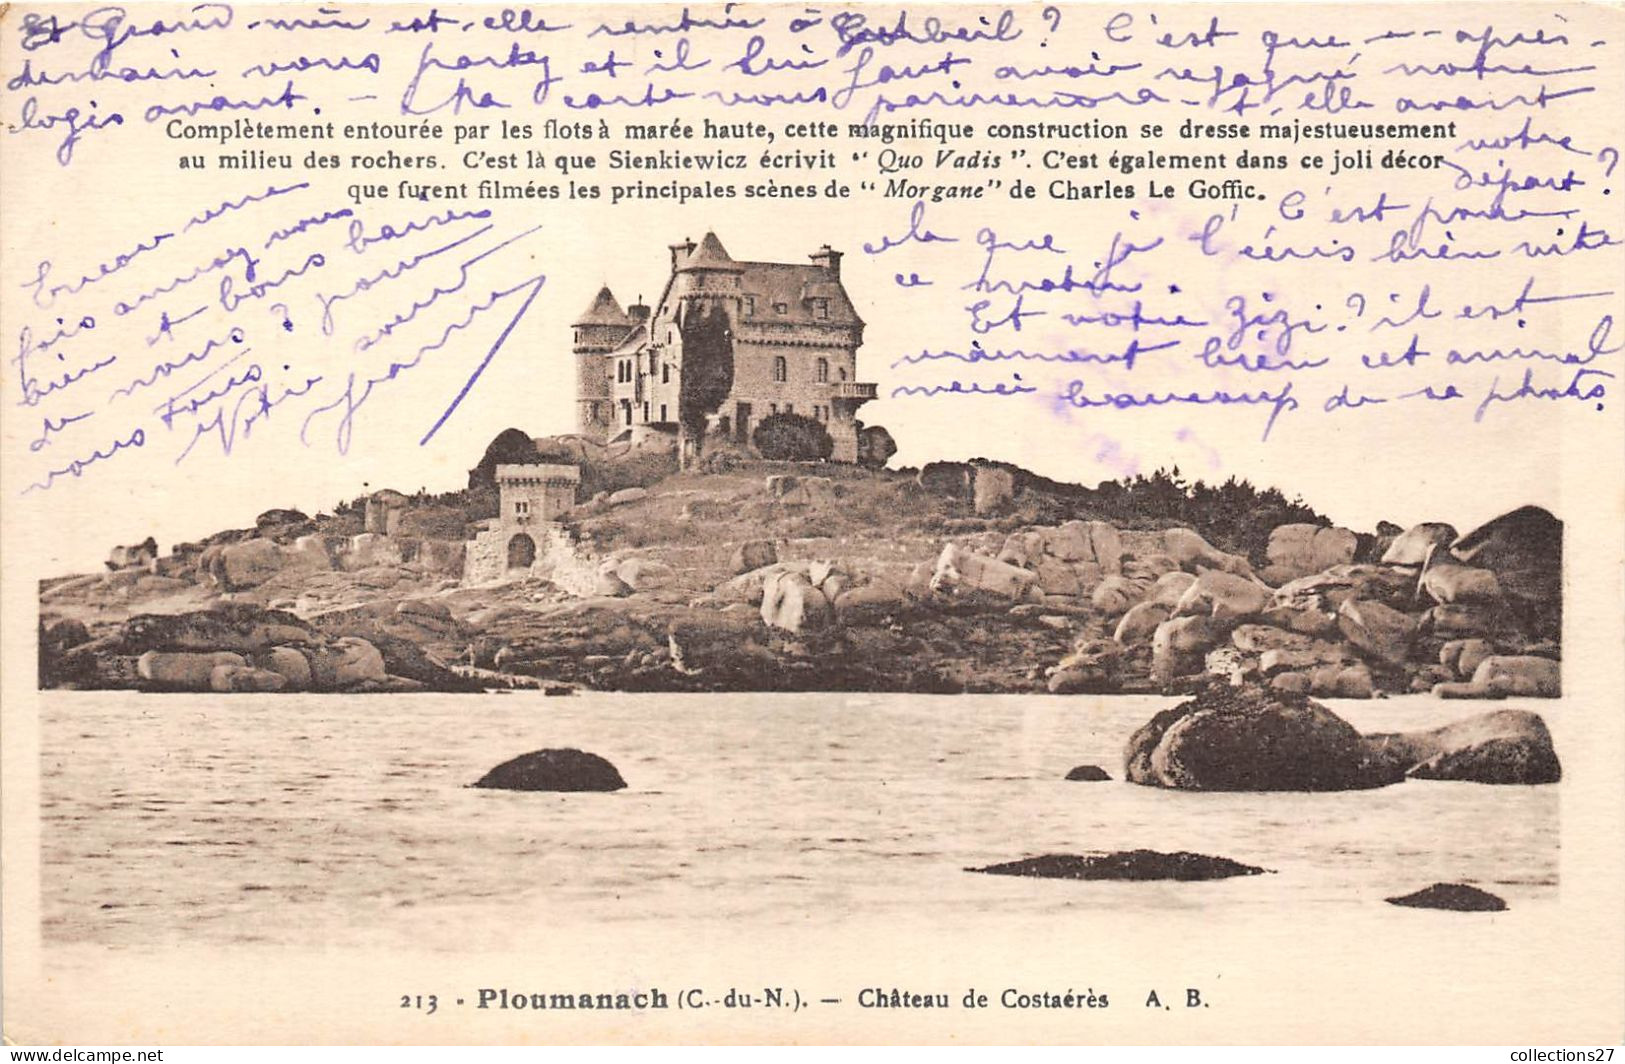 Et Grand-mère est-elle rentrée à Corbeil ? C'est que - après-
demain vous partez et il lui faut avoir regagné votre
logis avant. - Ma carte vous parviendra-t-elle avant
votre
départ ?
C'est pour
cela que je l'écris bien vite
ce matin.
Et votre Zizi ? il est
vraiment bien cet animal
merci beaucoup de sa photo.
Complètement entourée par les flots à marée haute, cette magnifique construction se dresse majestueusement
au milieu des rochers. C'est là que Sienkiewicz écrivit “ Quo Vadis ”. C'est également dans ce joli décor
que furent filmées les principales scènes de “ Morgane” de Charles Le Goffic.
Encore une
fois amusez vous
bien et bons baisers
de nous ? pour
vous tous.
Votre
Jeanne
213 - Ploumanach (C.-du-N.). — Château de Costaérès A. B.
collections27